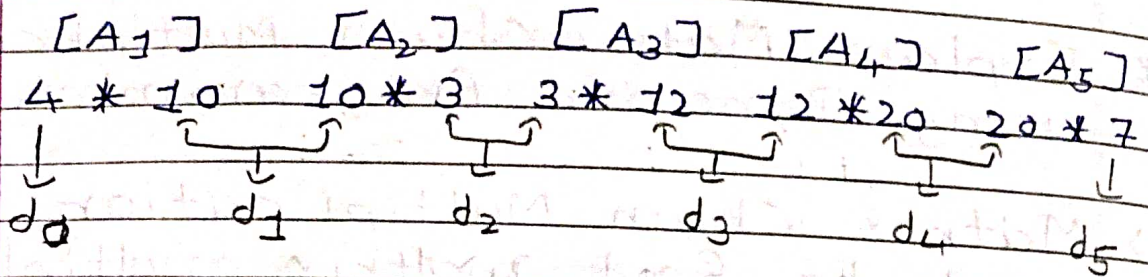 [A1] [A2] [A3] [A4] [A5]
4 * 10 10 * 3 3 * 12 12 * 20 20 * 7
d0 d1 d2 d3 d4 d5